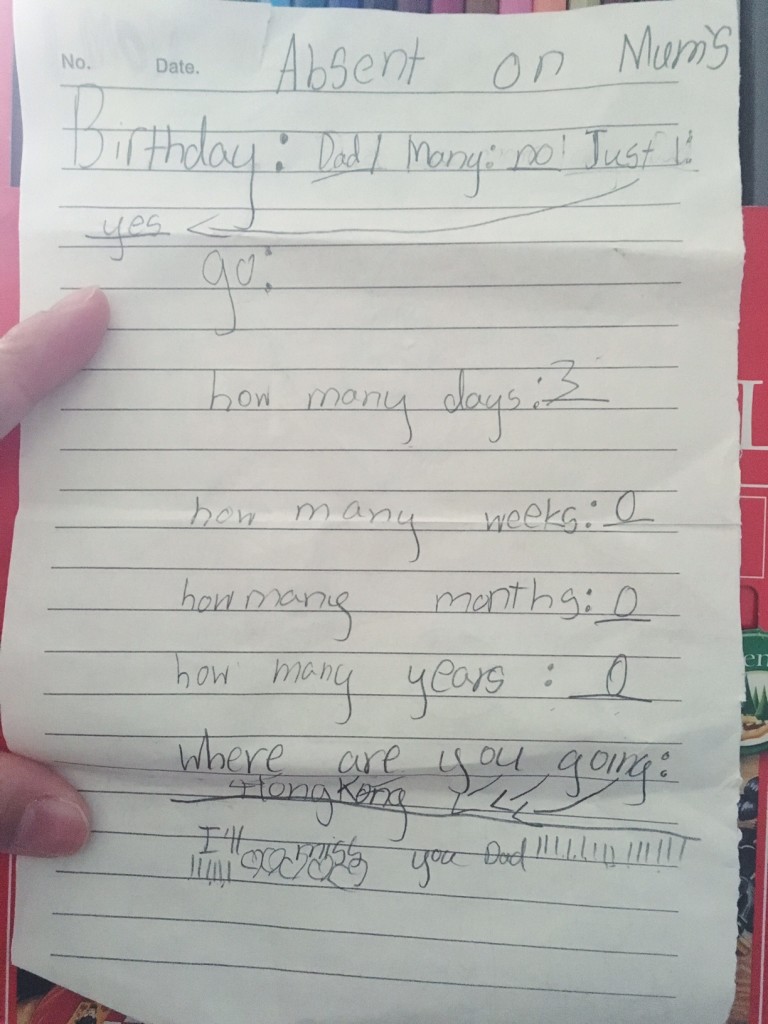 No. Date. Absent on Mum's
Birthday: Dad/ Many: no! Just 1:
yes
go:
how many days: 3
how many weeks: 0
how many months: 0
how many years : 0
where are you going:
Hong Kong
I'll miss you Dad!!!!!!!!!!!!!!
!!!!!!
L
en